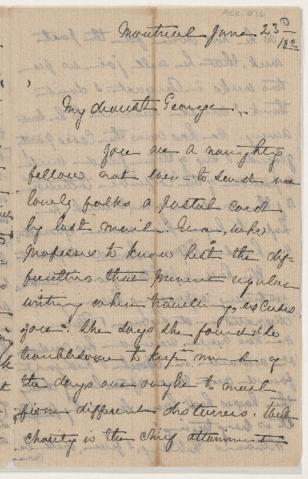 Montreal June 23d
1892
My dearest George.
You are a naughty
fellow not even to send us
lonely folks a postal card
by last mail. Emma, who
professes to know best the dif-
ficulties that prevent regular
writing when traveling, excuses
you. She says she found it so
troublesome to keep mind of
the days one ought to mail
from different distances. That
charity is the chief attainment